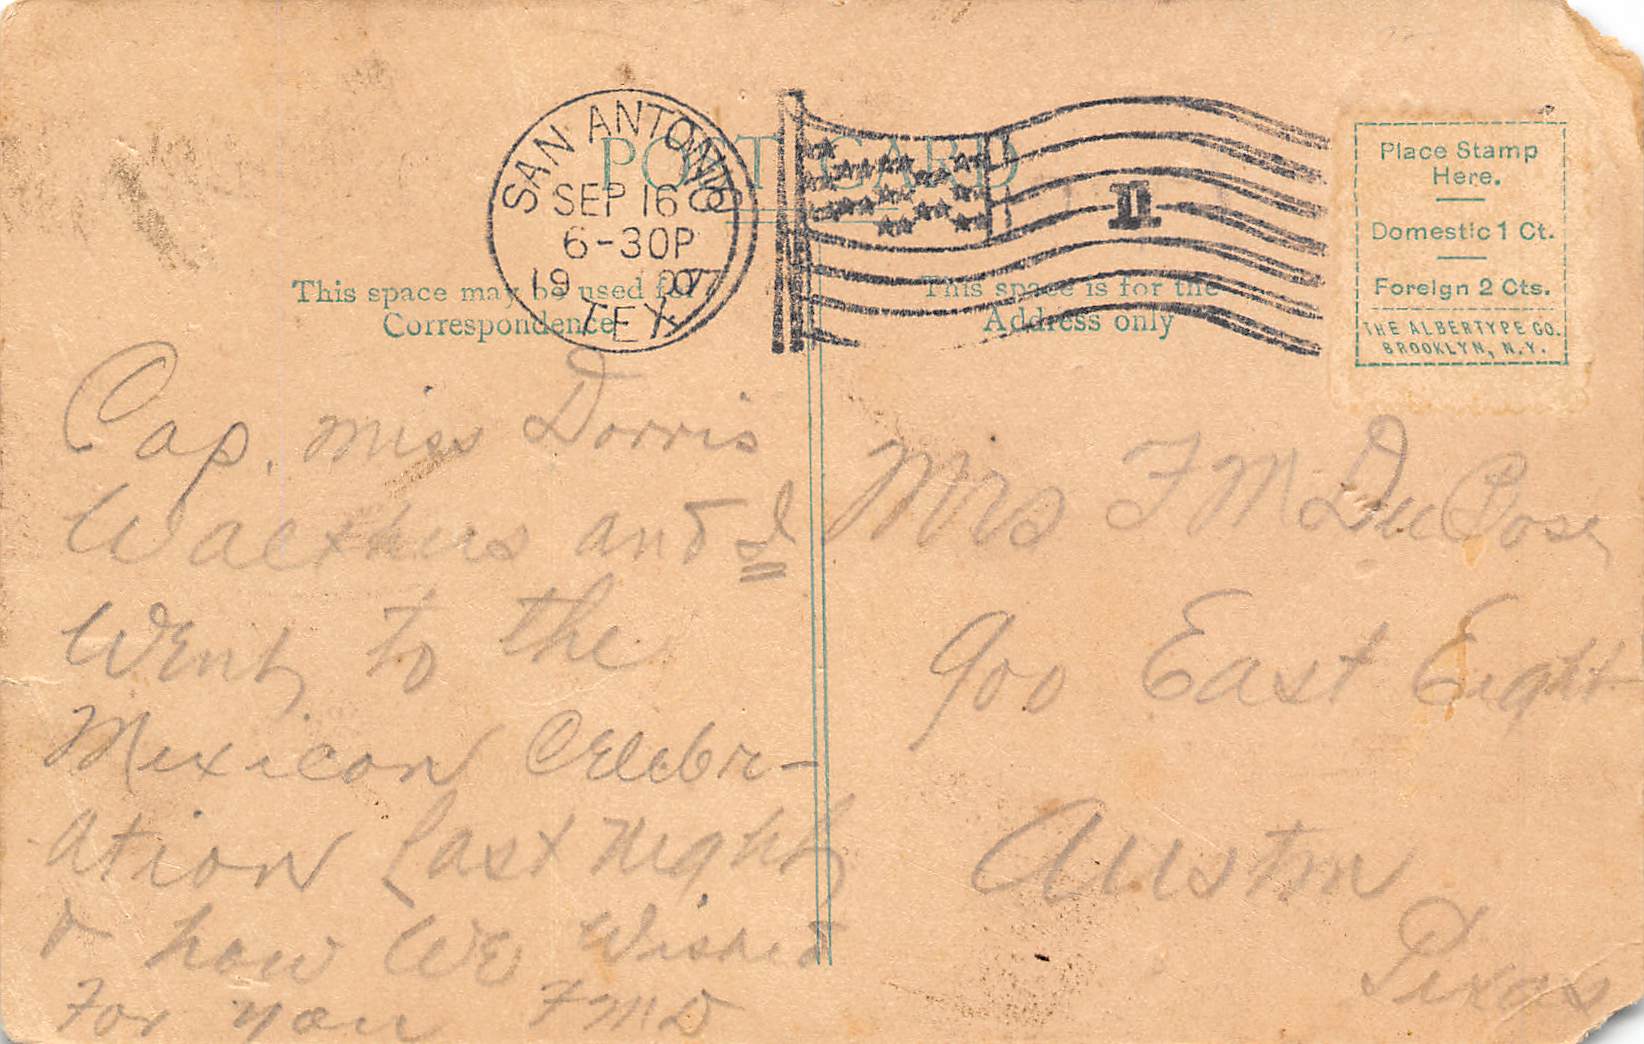 POST CARD
SAN ANTONIO
SEP 16
6-30P
1907
TEX
1
Place Stamp
Here.
Domestic 1 Ct.
Foreign 2 Cts.
THE ALBERTYPE CO.
BROOKLYN, N.Y.
This space may be used for
Correspondence
This space is for the
Address only
Cap. Miss Dorris
and I
Went to the
Mexican Celebr-
ation Last Night
& how WE Wished
For you FMD
Mrs F M DuBose
900 East Eight
Austin
Texas